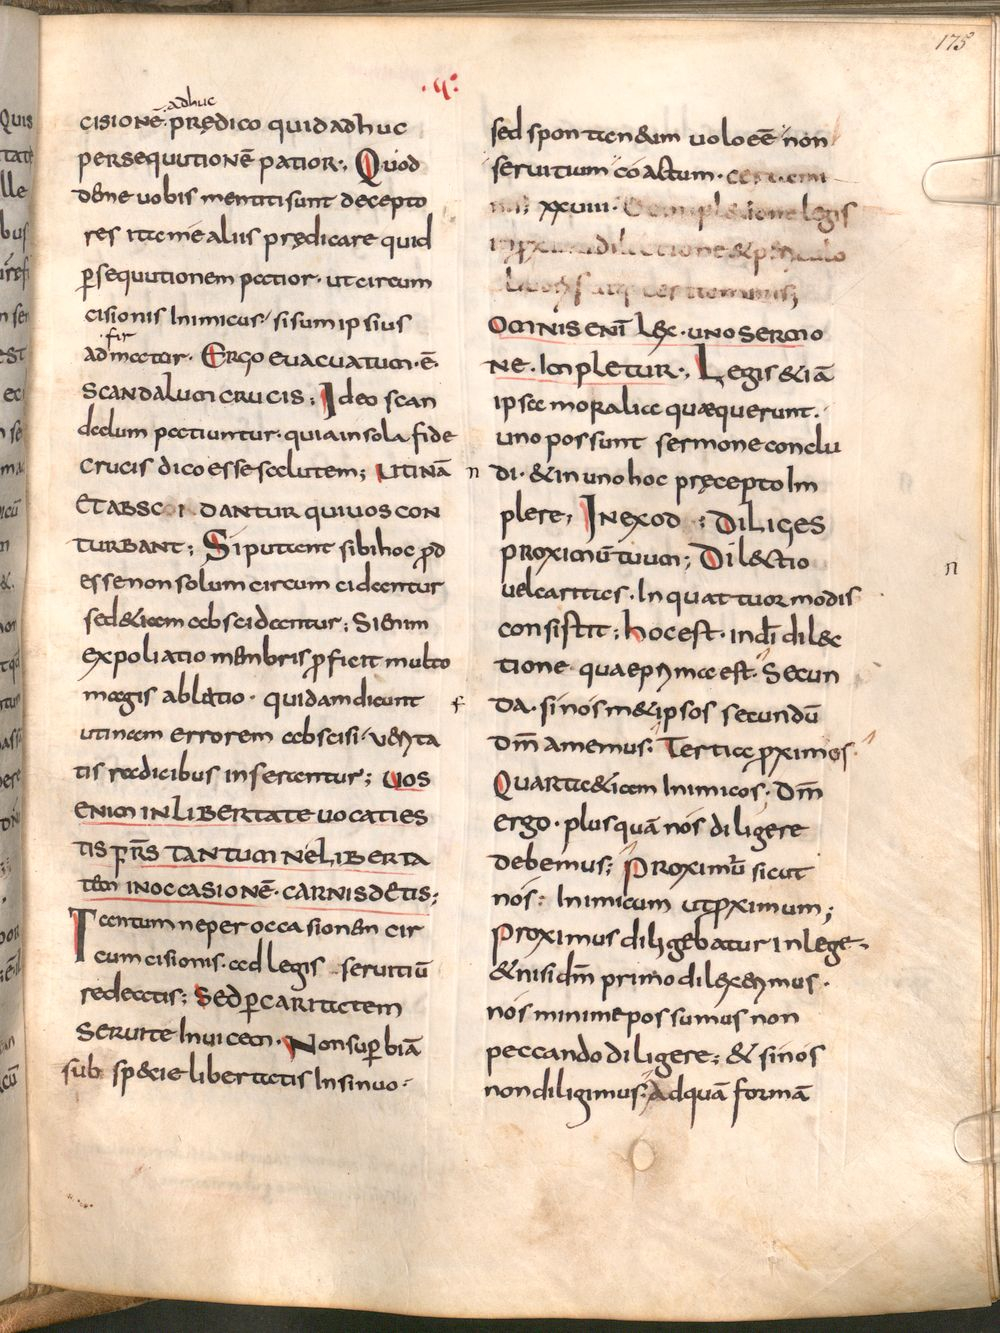 175
adhuc
cisionē. prędico quid adhuc
persequutionē patior; Quod
de me uobis mentiti sunt decepto
res ita me aliis prędicare quid
p̄sequutionem patior. ut circum
cisionis Inimicus si sum ipsius
fir
admator. Ergo euacuatum. ē.
scandalum crucis; Ideo scan
dalum patiuntur. quia in sola fide
crucis dico esse salutem; Utinā
et absci dantur qui uos con
turbant; Si putant sibi hoc p̄d
esse non solum circum cidantur
sed & iam abscidantur; Si enim
expoliatio menbris p̄ficit multo
magis ablatio. quidam dicunt
utinam errorem abscisi. uerita
tis radicibus inserantur; uos
enim in libertate uocati es
tis fr̄s tantum ne liberta
tem in occasionē. carnis detis;
Tantum ne per occasionem cir
cumcisionis. ad legis seruitiū
redeatis; Sed p̄ caritatem
seruite Inuicem. Non sup̄biā
sub specie libertatis Insinuo.
sed spontaneam uolo eē non
seruitium coactum.
xxuiii. legis
dilectione & periculo
Omnis enī lex. uno sermo
ne. Inpletur; Legis & iā
ipsae moralia quae querunt.
uno possunt sermone conclu
n di. & in uno hoc pręcepto Im
plere; In exod ; Diliges
proximū tuum; Dilectio
n
uel caritas. In quattuor modis
consistit; hoc est. in dī dilec
tione quae prima est. Secun
f da. si nos met ipsos secundū
dm̄ amemus; Tertia p̄ximos.
Quarta & iam Inimicos; Dm̄
ergo. plus quā nos diligere
debemus; Proximū sicut
nos: Inimicum ut p̄ximum;
Proximus diligebatur in lege.
& nisi dm̄ primo dilexerimus.
nos minime possumus non
peccando diligere; & si nos
non diligimus. Ad quā formā